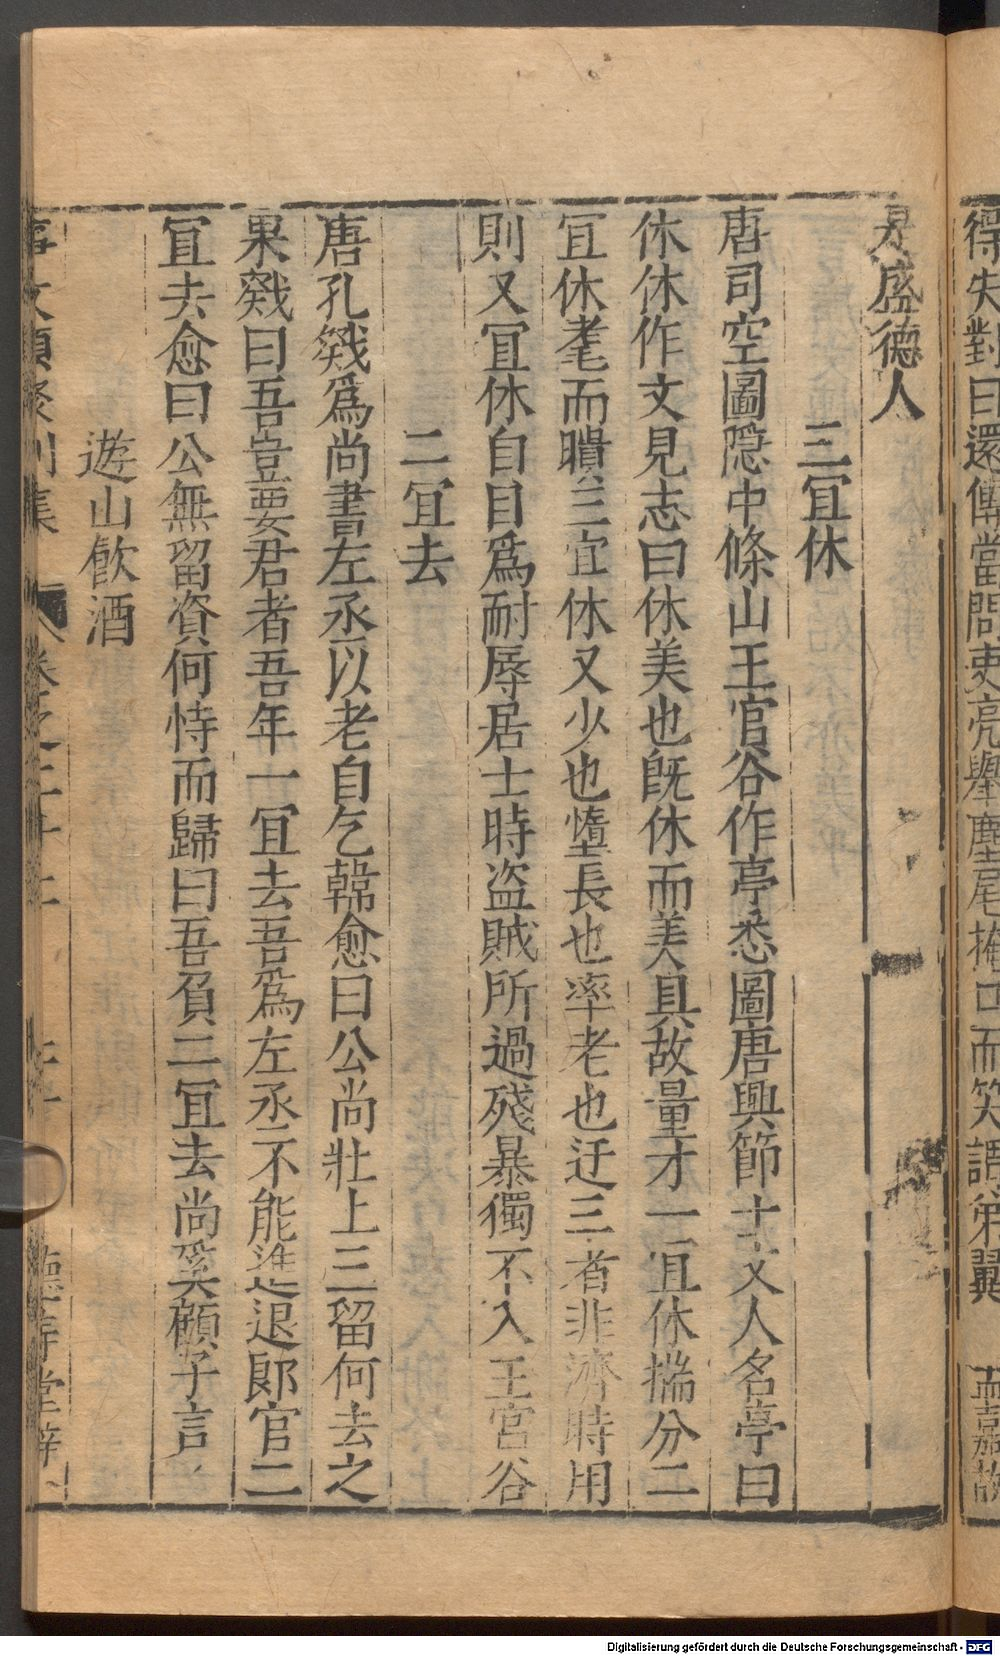 得失對曰還傳當問吏亮舉麈尾掩口而笑謂弟翼 孟嘉故
是盛德人
三宜休
唐司空圖隱中條山王官谷作亭悉圖唐興節士文人名亭曰
休休作文見志曰休美也旣休而美具故量才一宜休揣分二
宜休耄而聵三宜休又少也墮長也率老也迂三者非濟時用
則又宜休自目爲耐辱居士時盜賊所過殘暴獨不入王官谷
二宜去
唐孔戣爲尚書左丞以老自乞韓愈曰公尚壯上三留何去之
果戣曰吾豈要君者吾年一宜去吾爲左丞不能進退郎官二
宜去愈曰公無留資何恃而歸曰吾負二宜去尚奚顧子言
遊山飲酒
事文類聚別集 卷之二十二 德壽堂梓
Digitalisierung gefördert durch die Deutsche Forschungsgemeinschaft - DFG